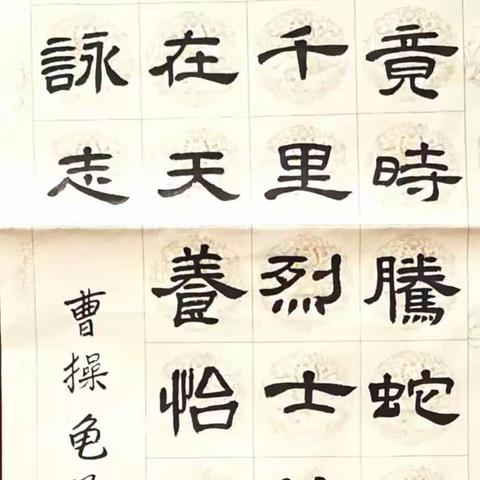 竟時騰蛇
千里烈士
在天養怡
詠志
曹操龟